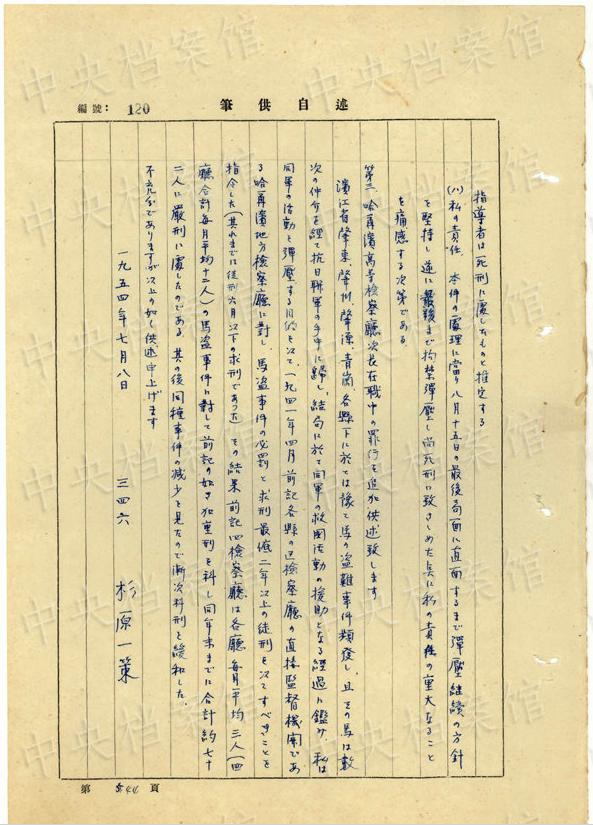 編號: 120
述自供筆
指導者は死刑に處したものと推定する
(八)私の責任、本件の處理に當り八月十五日の最後局面に直面するまで彈壓継續の方針
を堅持し逆に最後まで拘禁彈壓し尚死刑に致さしめた点に私の責任の重大なること
を痛感する次第である
第三、哈爾濱高等檢察廳次長在職中の罪行を追加供述致します
濱江省肇東、肇州、肇源、青崗、各縣下に於ては豫て馬の盗難事件類發し、且その馬は數
次の仲介を経て抗日聯軍の手中に歸し、結局に於て同軍の救國活動の援助となる経過に鑑み、私は
同軍の活動を彈壓する目的を以て、一九四一年四月前記各縣の区檢察廳の直接監督機関であ
る哈爾濱地方檢察廳に對し、馬盗事件の必罰と求刑最低二年以上の徒刑を以てすべきことを
指令した(其れまでは徒刑六月以下の求刑であった)その結果前記四檢察廳は各廳毎月平均三人(四
廳合計毎月平均十二人)の馬盗事件に對して前記の如き独重刑を科し同年末までに合計約七十
二人に嚴刑に處したのである 其の後同種事件の減少を見たので漸次科刑を緩和した。
不充分でありますが以上の如く供述申上げます
一九五四年七月八日
三四六 杉原一策
第 頁
中央档案馆